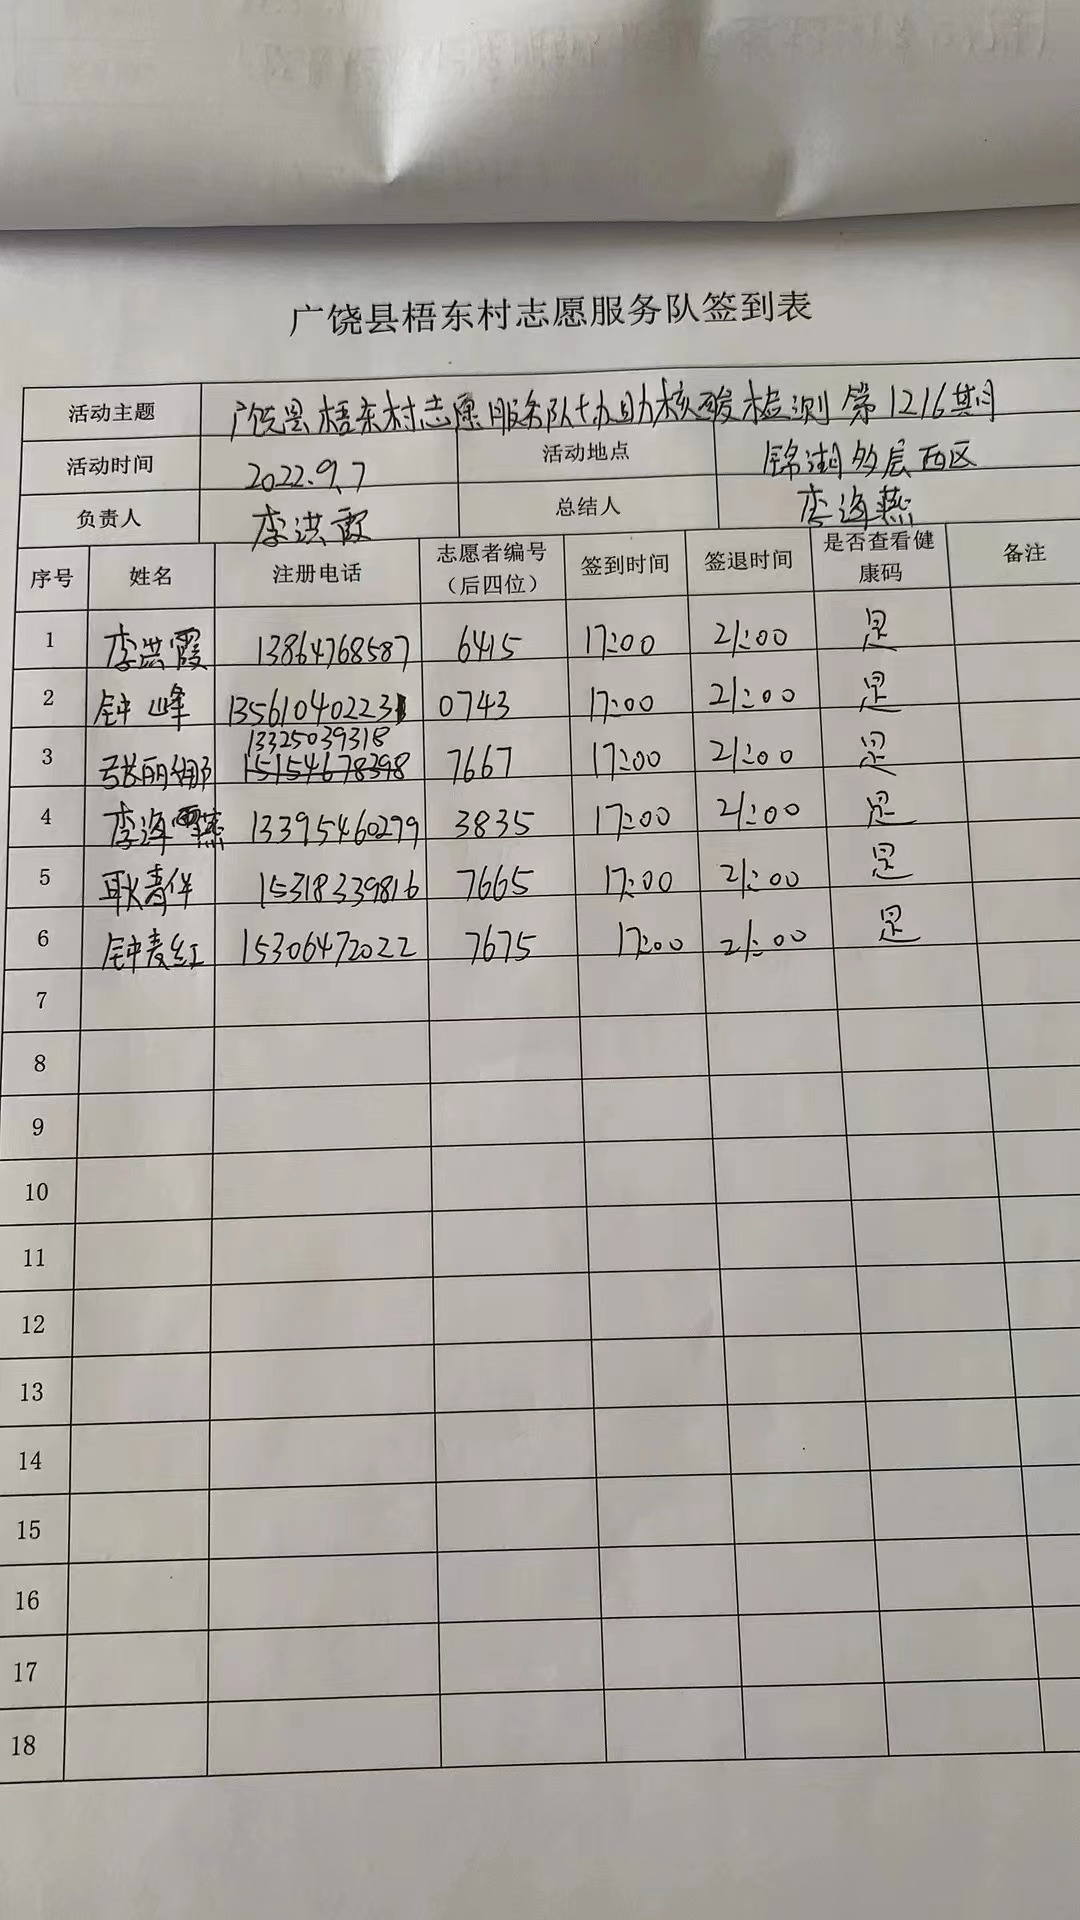 广饶县梧东村志愿服务队签到表
活动主题 广饶县梧东村志愿服务队协助核酸检测第1216期
活动时间 2022.9.7 活动地点 锦湖多层西区
负责人 李洪霞 总结人 李海燕
序号 姓名 注册电话 志愿者编号（后四位） 签到时间 签退时间 是否查看健康码 备注
1 李洪霞 13864768587 6415 17:00 21:00 是
2 钟峰 13561040223 0743 17:00 21:00 是
13325039318
3 张丽娜 15154678398 7667 17:00 21:00 是
4 李海燕 13395460299 3835 17:00 21:00 是
5 耿青伴 15318339816 7665 17:00 21:00 是
6 钟麦红 15306472022 7675 17:00 21:00 是
7
8
9
10
11
12
13
14
15
16
17
18